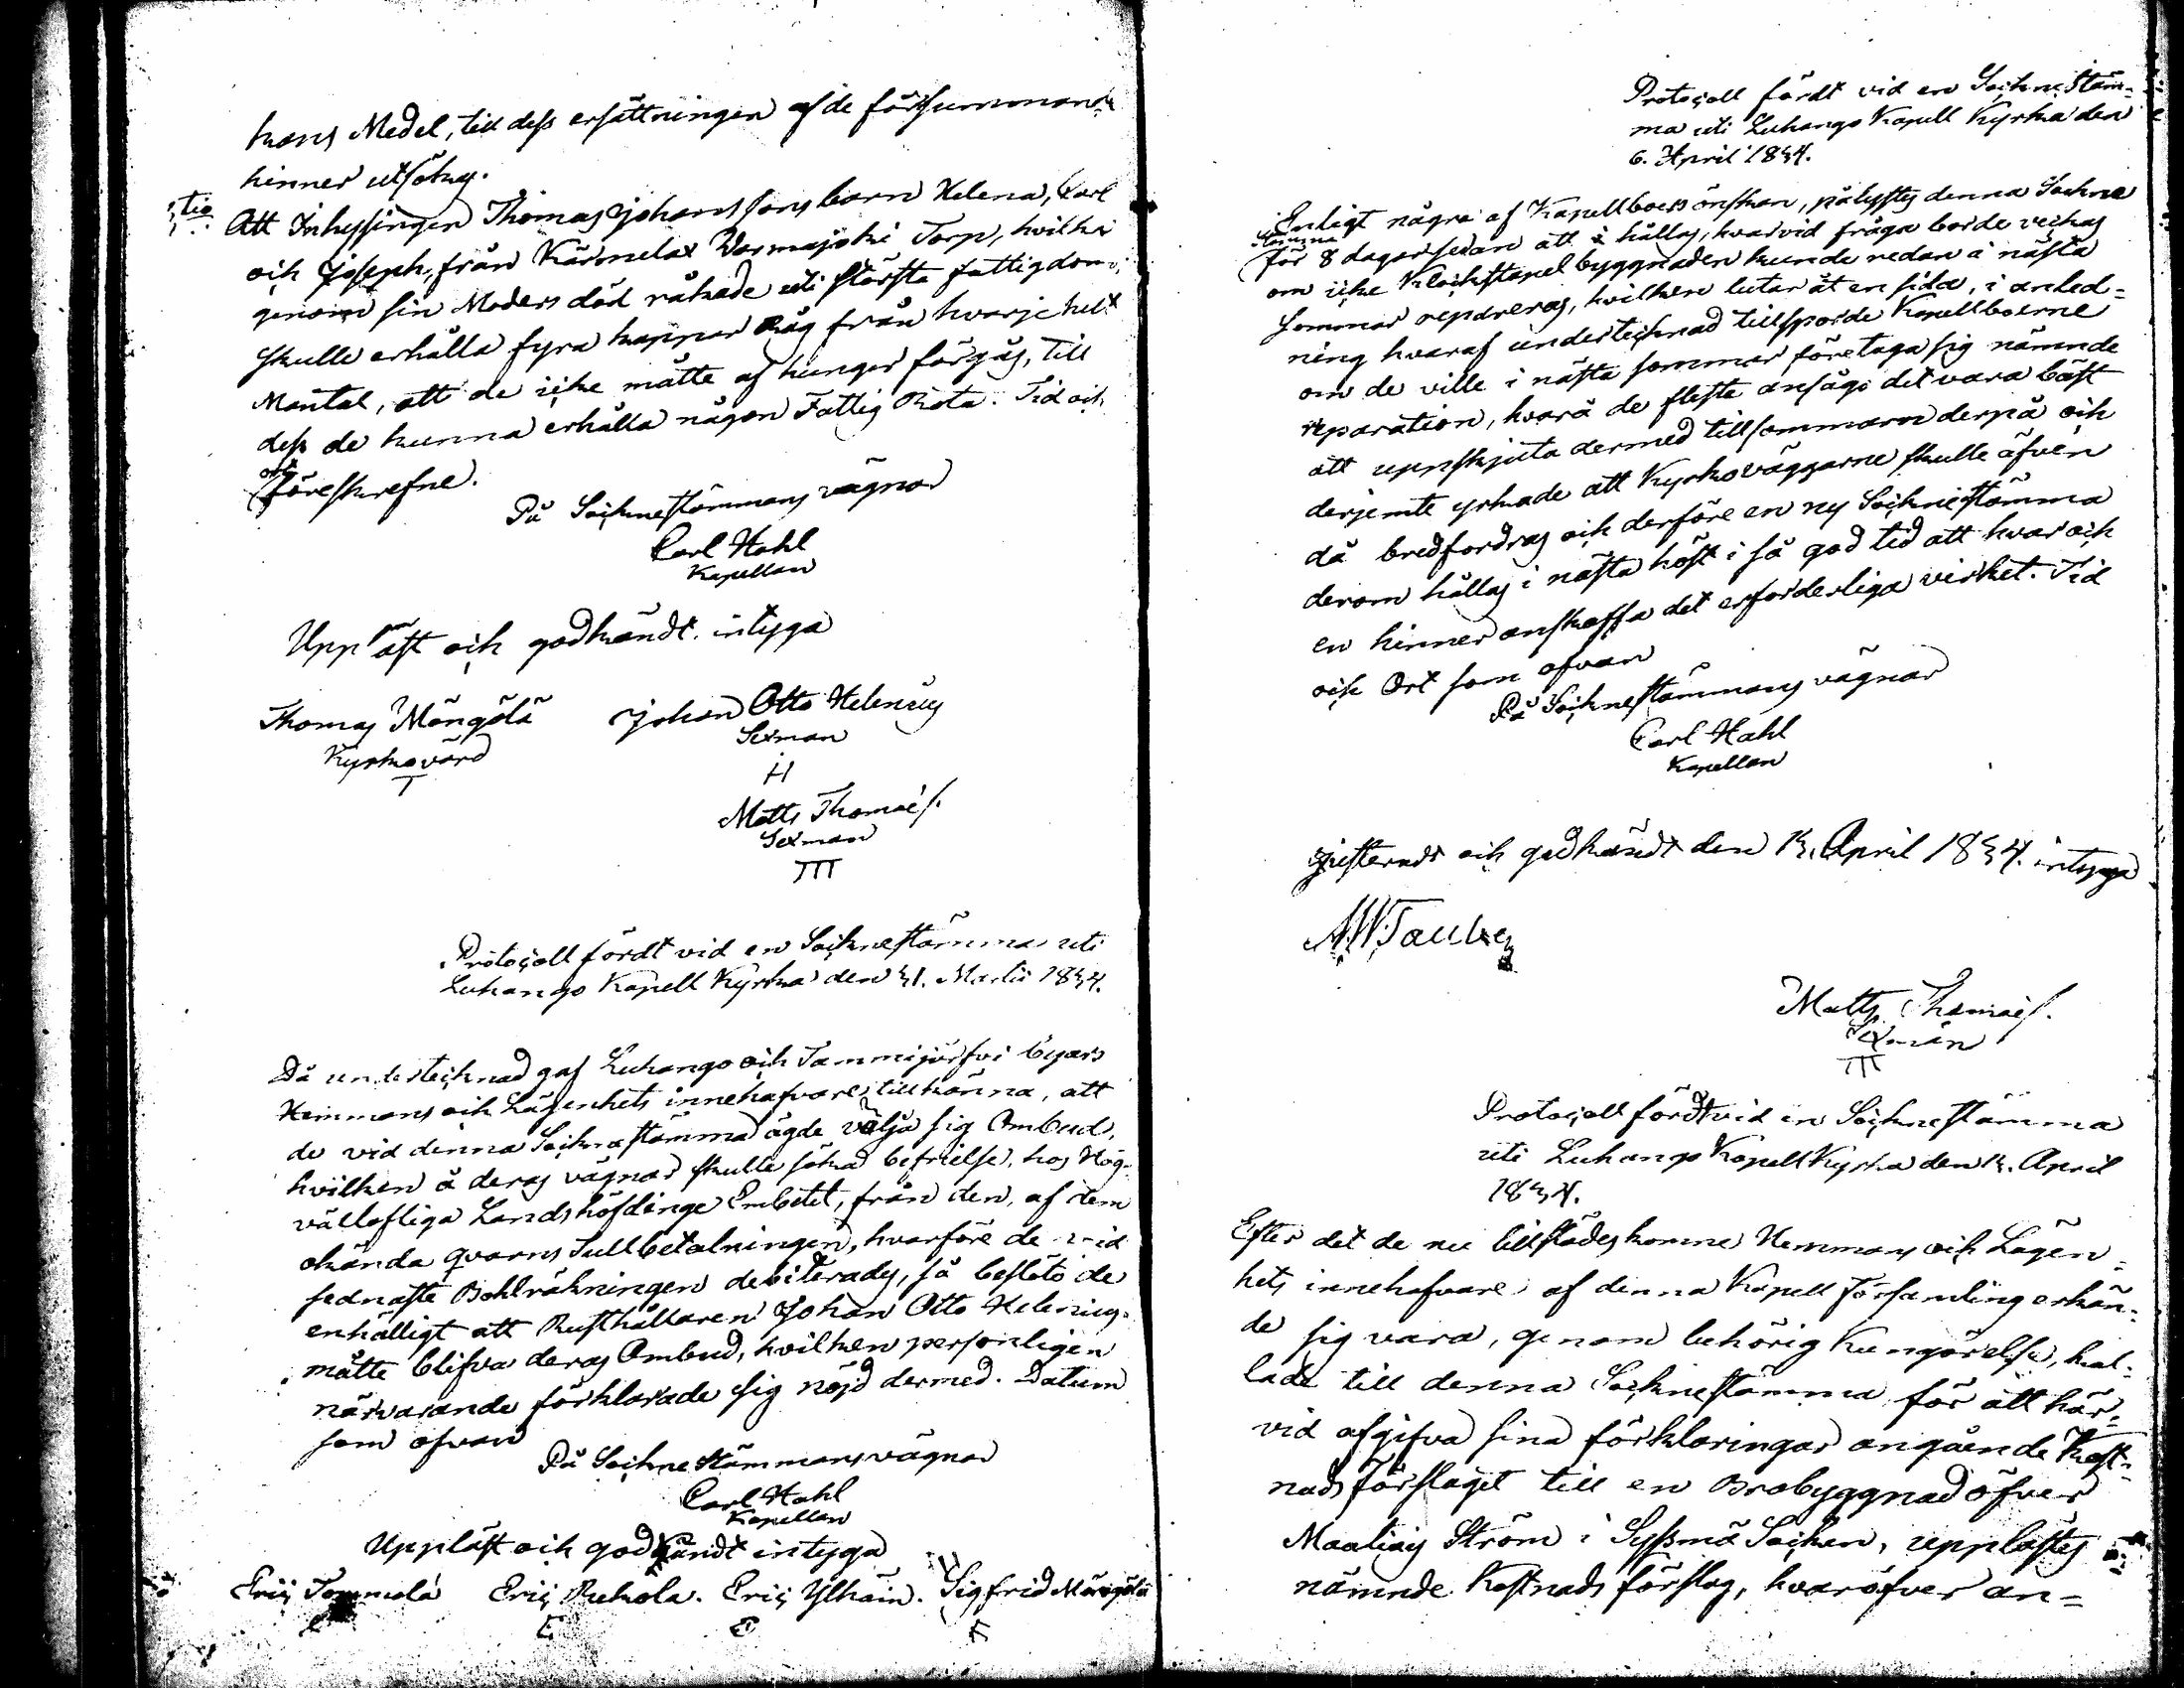 hans Medel, till dess ersättningen af de försummande
hinner utsökas.
5,tio Att Inhysingen Thomas Johanssons barn Helena, Carl
och Joseph, från Kärmelax Vermajoki Torp, hvilka
genom sin Moders död råkade uti största fattigdom,
skulle erhålla fyra kappar Råg från hvarje helt
Mantal, att de icke måtte af hunger förgås, till
dess de kunna erhålla någon Fattig Rota. Tid och
ort
föreskrefne.
På Sockenstämmans vägnar
Carl Hahl
Kapellan
Uppläst och godkändt, intyga
Thomas Mängälä Johan Otto Helenius
Kyrkovärd Sexman
T H
Matts Thomæs.
Sexman
TTT
Protocoll fördt vid en Socknestämma uti
Luhango Kapell Kyrka den 31. Martii 1834.
Då undertecknad gaf Luhango och Tammijärfvi byars
Hemmans och Lägenhets innehafvare tillkänna, att
de vid denna Socknestämma ägde välja sig Ombud,
hvilken å deras vägnar skulle söka befrielse, hos Hög-
vällofliga Landshöfdinge Embetet, från den, af dem
okända qvarns Tullbetalningen, hvarföre de vid
sednaste Bohlräkningen debiterades, så beslöto de
enhälligt att Rusthållaren Johan Otto Helenius
måtte blifva deras Ombud, hvilken personligen
närvarande förklarade sig nöjd dermed. Datum
som ofvan
På Sockne stämmans vägnar
Carl Hahl
Kapellan
Uppläst och godkändt intyga
Eric Tommola Eric Ruhola. Eric Ylhäin. Sigfrid Mängälä
E E
Protocoll fördt vid en Sockne stäm-
ma uti Luhango Kapell Kyrka den
6. April 1834.
Enligt några af Kapellboers önskan, pålystes denna Sockne
stämma
för 8 dagar sedan att hållas, hvarvid fråga borde veckas
om icke Klockstapel byggnaden kunde redan i nästa
Sommar repareras, hvilken lutar åt en sida, i anled-
ning hvaraf undertecknad tillsporde Kapellboerne
om de ville i nästa sommar företaga sig nämnde
reparation, hvarå de fleste ansågo det vara bäst
att uppskjuta dermed till sommaren derpå och
derjemte yrkade att Kyrkoväggarne skulle äfven
då bredfordras och derföre en ny Socknestämma
derom hållas i nästa höst i så god tid att hvar och
en hinner anskaffa det erforderliga virket. Tid
och Ort som ofvan
På Socknestämmans vägnar
Carl Hahl
Kapellan
Justeradt och godkändt den 13. April 1834. intyga
Matts Thomæs.
Sexman
TTT
Protocoll fördt vid en Socknestämma
uti Luhango Kapell Kyrka den 13. April
1834.
Efter det de nu tillstädes komne Hemmans och Lägen-
hets innehafvare af denna Kapell Församling erkän-
de sig vara, genom behörig Kungörelse, kal-
lade till denna Socknestämma för att här-
vid afgifva sina förklaringar angående Kost-
nads förslaget till en Brobyggnad öfver
Maatiais Ström i Sysmä Socken, upplästes
nämnde Kostnads förslag, hvaröfver an-